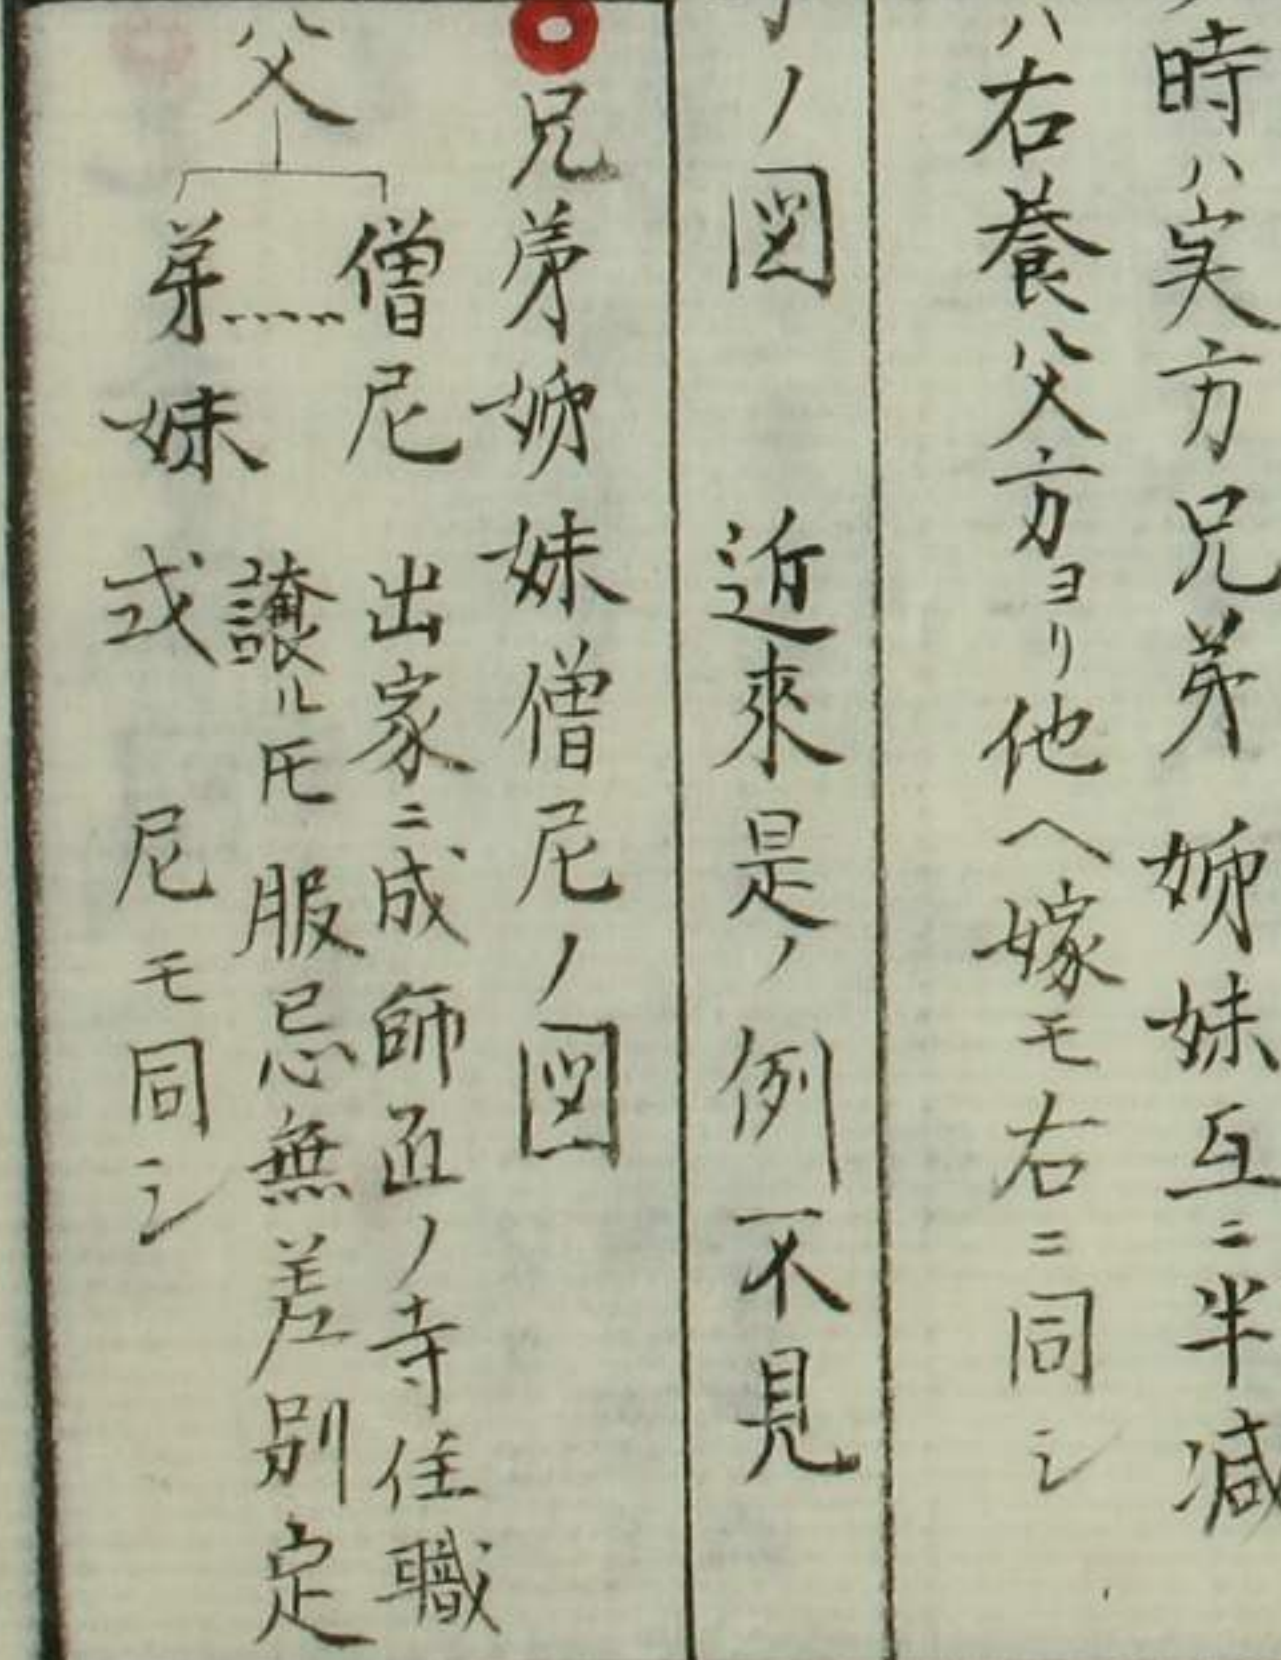 時ハ実方兄弟姉妹互ニ半減
ハ右養父方ヨリ他ヘ嫁モ右ニ同シ
ノ図 近來是ノ例不見
兄弟姉妹僧尼ノ図
父
僧尼 出家ニ成師匠ノ寺住職
譲ル𪜈服忌無差別定
弟妹 或 尼モ同シ